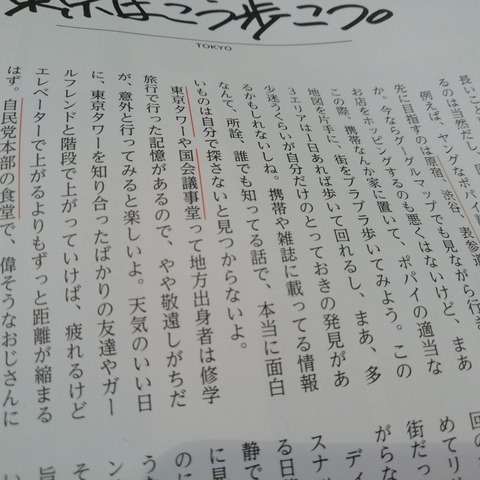 東京はこう歩こう。
TOKYO
長いこと
るのは当然だし、
例えば、ヤングなポパイ
先に目指すのは原宿、渋谷、表参道
か。今ならグーグルマップでも見ながら行き
お店をホッピングするのも悪くはないけど、まあ
この際、携帯なんか家に置いて、ポパイの適当な
地図を片手に、街をブラブラ歩いてみよう。この
3エリアは1日あれば歩いて回れるし、まあ、多
少迷うくらいが自分だけのとっておきの発見があ
るかもしれないしね。携帯や雑誌に載ってる情報
なんて、所詮、誰でも知ってる話で、本当に面白
いものは自分で探さないと見つからないよ。
東京タワーや国会議事堂って地方出身者は修学
旅行で行った記憶があるので、やや敬遠しがちだ
が、意外と行ってみると楽しいよ。天気のいい日
に、東京タワーを知り合ったばかりの友達やガー
ルフレンドと階段で上がっていけば、疲れるけど
エレベーターで上がるよりもずっと距離が縮まる
はず。自民党本部の食堂で、偉そうなおじさんに
回の
めてリ
街だっ
がらな
ディ
スナ
る日
静で
に見
のに
う
ン
そ
旨
い